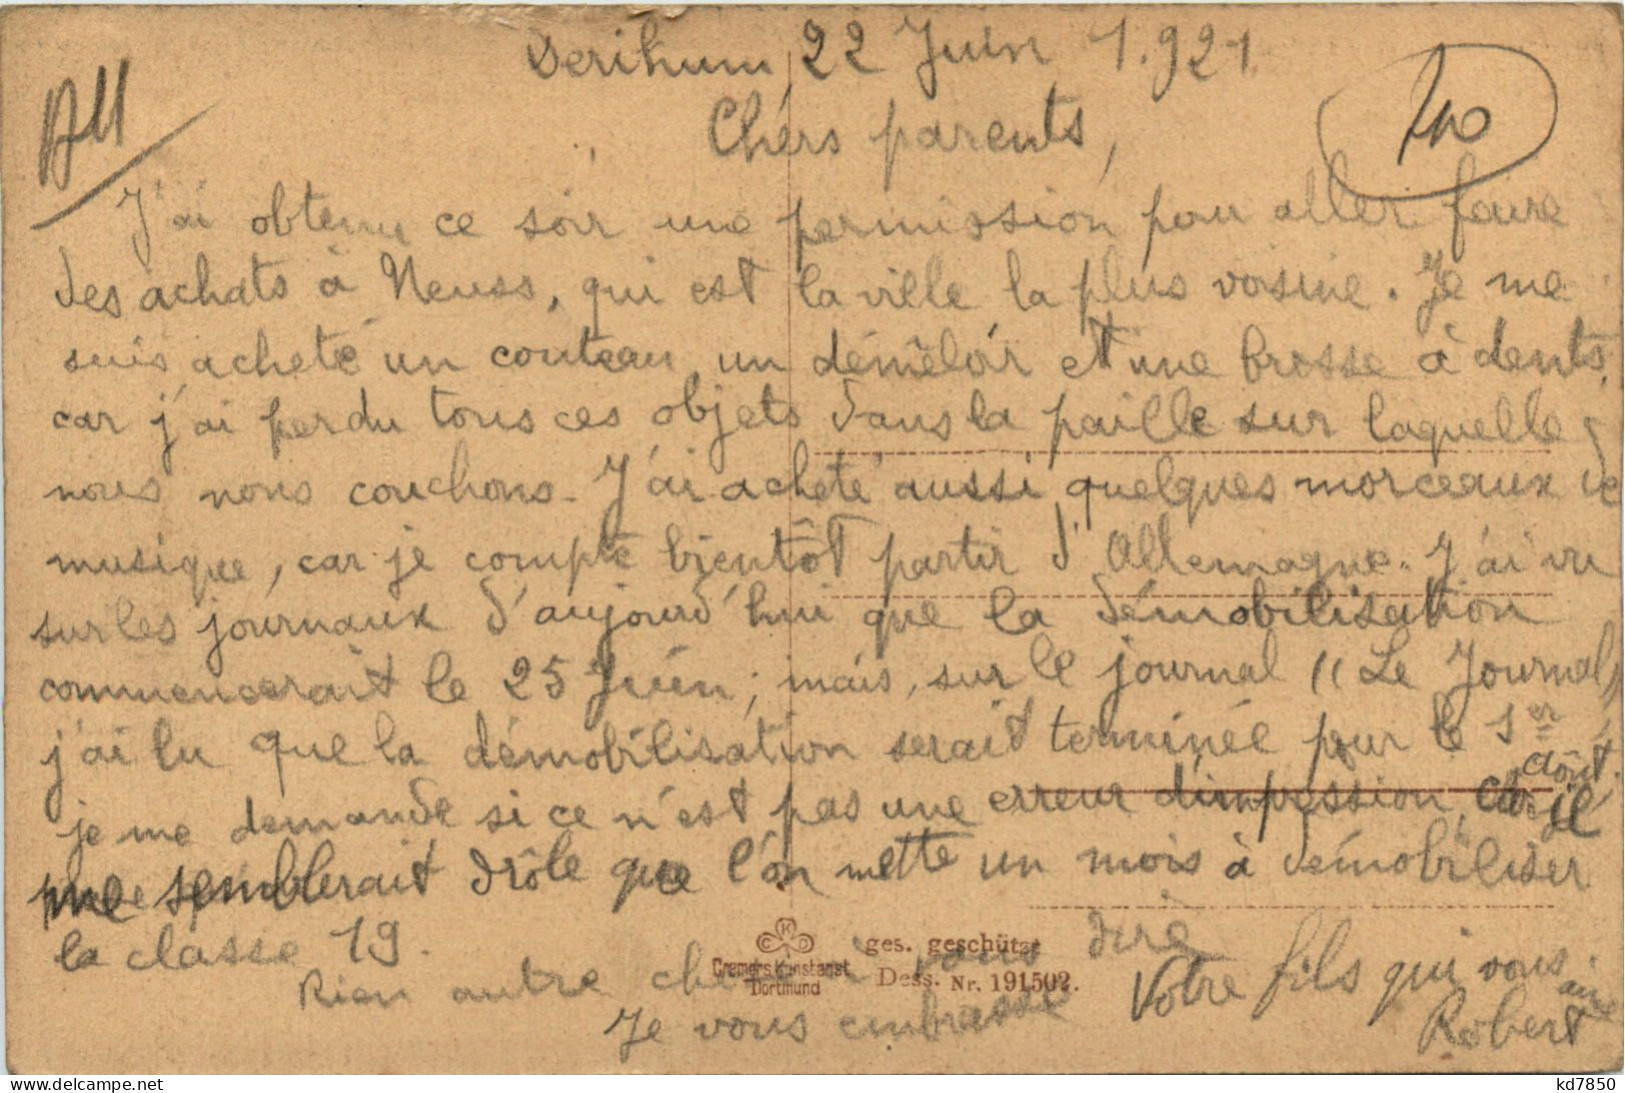 Derikum 22 Juin 1.921
Chers parents,
J'ai obtenu ce soir une permission pour aller faire
des achats à Neuss, qui est la ville la plus voisine. Je me
suis acheté un couteau, un démêloir et une brosse à dents,
car j'ai perdu tous ces objets dans la paille sur laquelle
nous nous couchons. J'ai acheté aussi quelques morceaux de
musique, car je compte bientôt partir d'Allemagne. J'ai vu
sur les journaux d'aujourd'hui que la démobilisation
commencerait le 25 Juin ; mais, sur le journal "Le Journal",
j'ai lu que la démobilisation serait terminée pour le 1er
Août.
je me demande si ce n'est pas une erreur d'impression, car il
me semblerait drôle que l'on mette un mois à démobiliser
la classe 19.
Rien autre chose à vous dire
Je vous embrasse
Votre fils qui vous aime
Robert
CKD
Cremers Kunstanst
Dortmund
ges. geschützt
Dess. Nr. 191502.
www.delcampe.net
kd7850